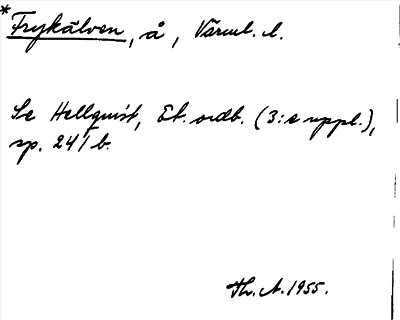 * Frykälven, å, Värml. l.
Se Hellquist, Et. ordb. (3:e uppl.),
sp. 241 b.
Th. A. 1955.